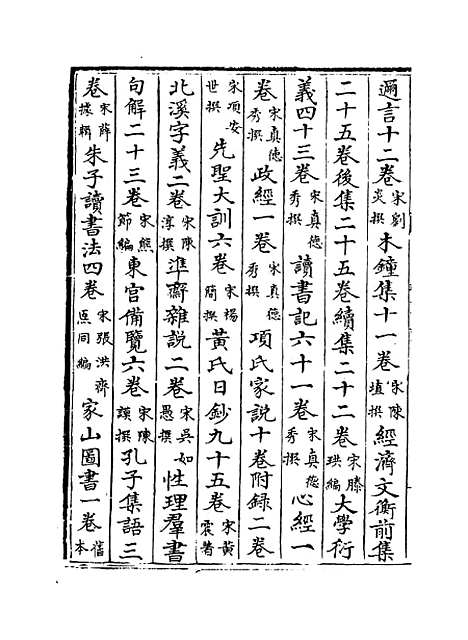 邇言十二卷宋劉炎撰木鐘集十一卷宋陳埴撰經濟文衡前集
二十五卷後集二十五卷續集二十二卷宋滕珙編大學衍
義四十三卷宋真德秀撰讀書記六十一卷宋真德秀撰心經一
卷宋真德秀撰政經一卷宋真德秀撰項氏家說十卷附錄二卷
宋項安世撰先聖大訓六卷宋楊簡撰黃氏日鈔九十五卷宋黃震著
北溪字義二卷宋陳淳撰準齋雜說二卷宋吳如愚撰性理羣書
句解二十三卷宋熊節編東宮備覽六卷宋陳謨撰孔子集語三
卷宋薛據輯朱子讀書法四卷宋張洪齊𤋮同編家山圖書一卷舊本